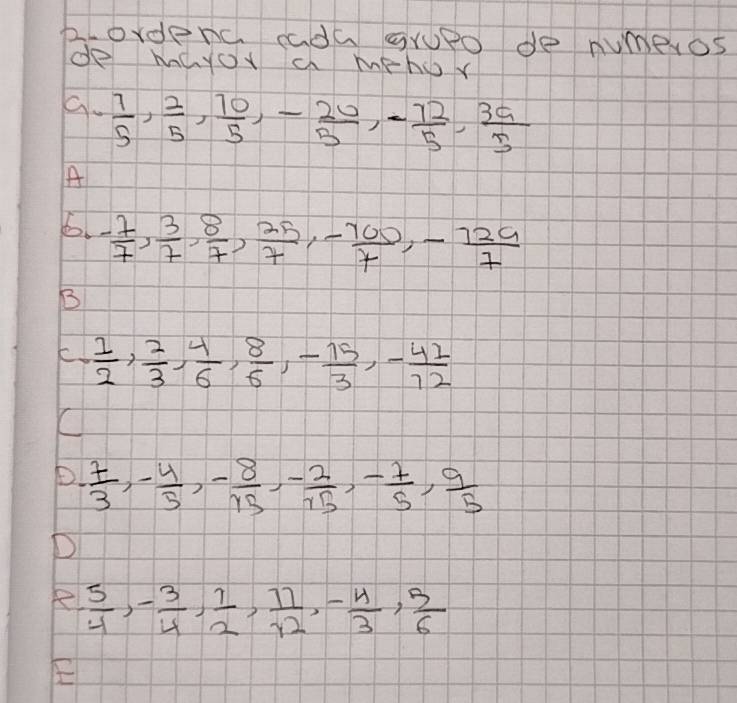 2. ordena cada grupo de numeros
de mayor a menor
a. 1/5, 2/5, 10/5, -20/5, -12/5, 39/5
A
b. -7/7, 3/7, 8/7, 25/7, -100/7, -129/7
B
c. 1/2, 2/3, 4/6, 8/6, -15/3, -41/12
C
D. 7/3, -4/5, -8/15, -2/15, -7/5, 9/5
D
e. 5/4, -3/4, 1/2, 11/12, -4/3, 5/6
E